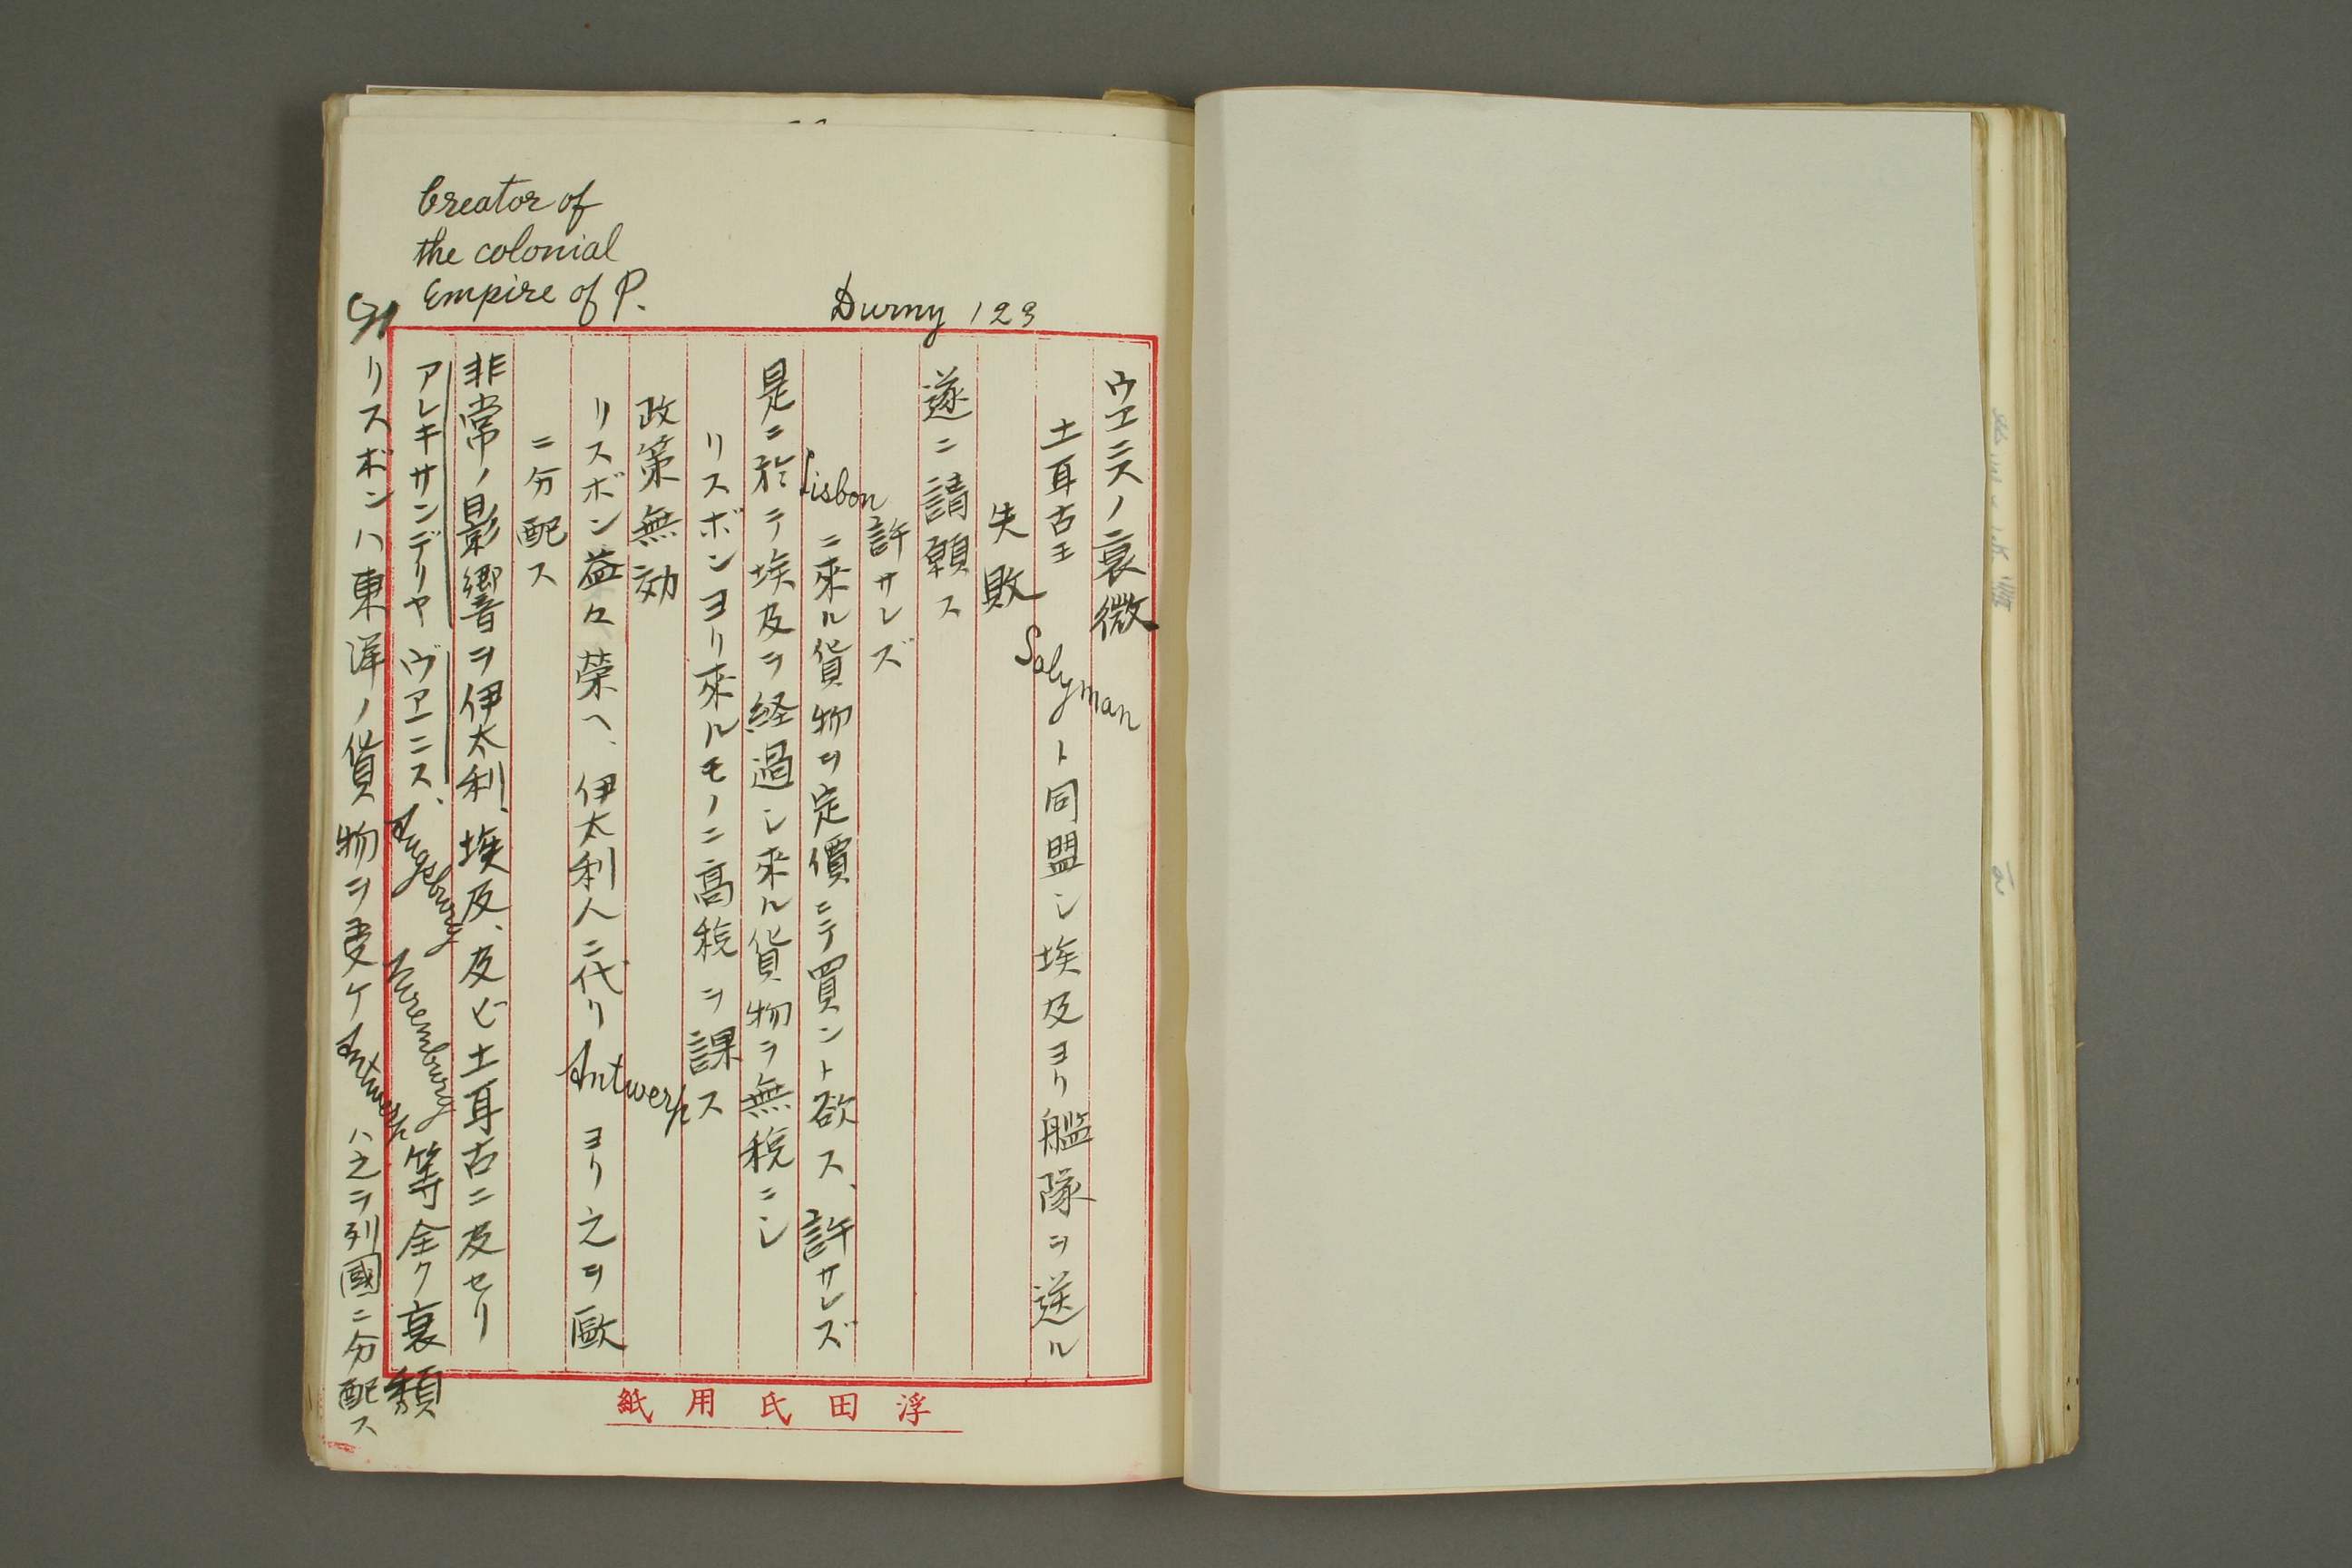 Creator of
the colonial
Empire of P.
Durny 123
ウエニスノ衰微
土耳古王 Solyman ト同盟シ埃及ヨリ艦隊ヲ送ル
失敗
遂ニ請願ス
許サレズ
Lisbon ニ來ル貨物ヲ定價ニテ買ント欲ス、許サレズ
是ニ於テ埃及ヲ経過シ來ル貨物ヲ無税ニシ
リスボンヨリ來ルモノニ高税ヲ課ス
政策無効
リスボン益々榮ヘ、伊太利人ニ代リ Antwerp ヨリ之ヲ歐
ニ分配ス
非常ノ影響ヲ伊太利、埃及、及ビ土耳古ニ及セリ
アレキサンデリヤ ヴエニス、Augsburg Nuremburg 等全ク衰頽
リスボンハ東洋ノ貨物ヲ受ケ Antwerp ハ之ヲ列國ニ分配ス
浮田氏用紙